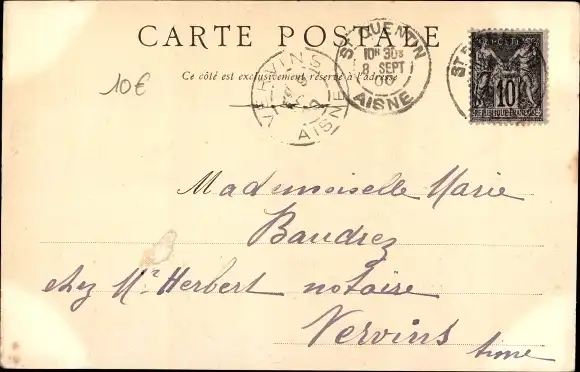 CARTE POSTALE
Ce côté est exclusivement réservé à l'adresse
10€
VERVINS
AISNE
ST QUENTIN
10H 30S
8 SEPT
AISNE
ST
10
REPUBLIQUE FRANÇAISE
Mademoiselle Marie
Baudrez
chez Mr Herbert notaire
Vervins